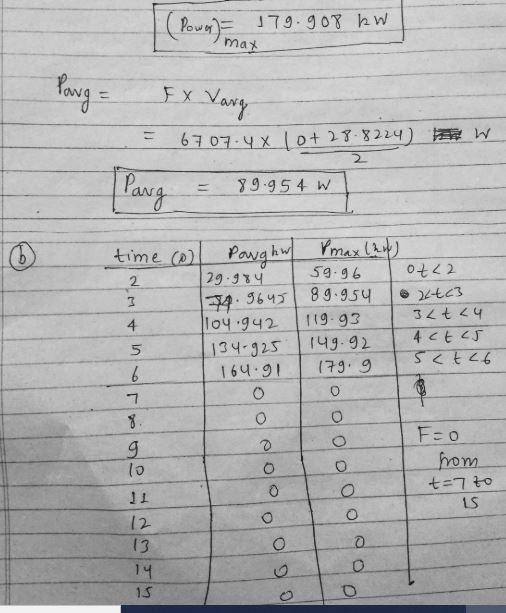 (Power)max = 179.908 kW
Pavg = F x Vavg
= 6707.4 x (0 + 28.8224) / 2 W
Pavg = 89.954 W
(b)
time (s) Pavg kW Pmax (kW)
2 29.984 59.96 0 t < 2
3 .9645 89.954 2<t<3
4 104.942 119.93 3 < t < 4
5 134.925 149.92 4 < t < 5
6 164.91 179.9 5 < t < 6
7 0 0
8. 0 0
9 0 0 F = 0
10 0 0 from
11 0 0 t = 7 to
12 0 0 15
13 0 0
14 0 0
15 0 0